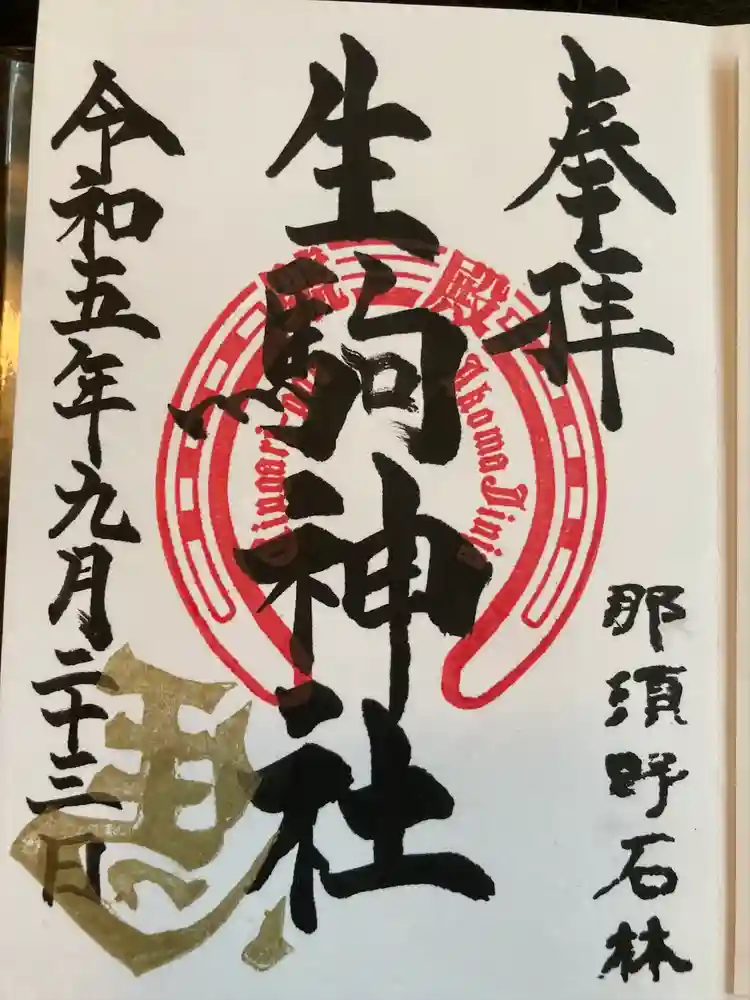 奉拝
那須野石林
生駒神社
殿
Ikoma Jinja
令和五年九月二十三日